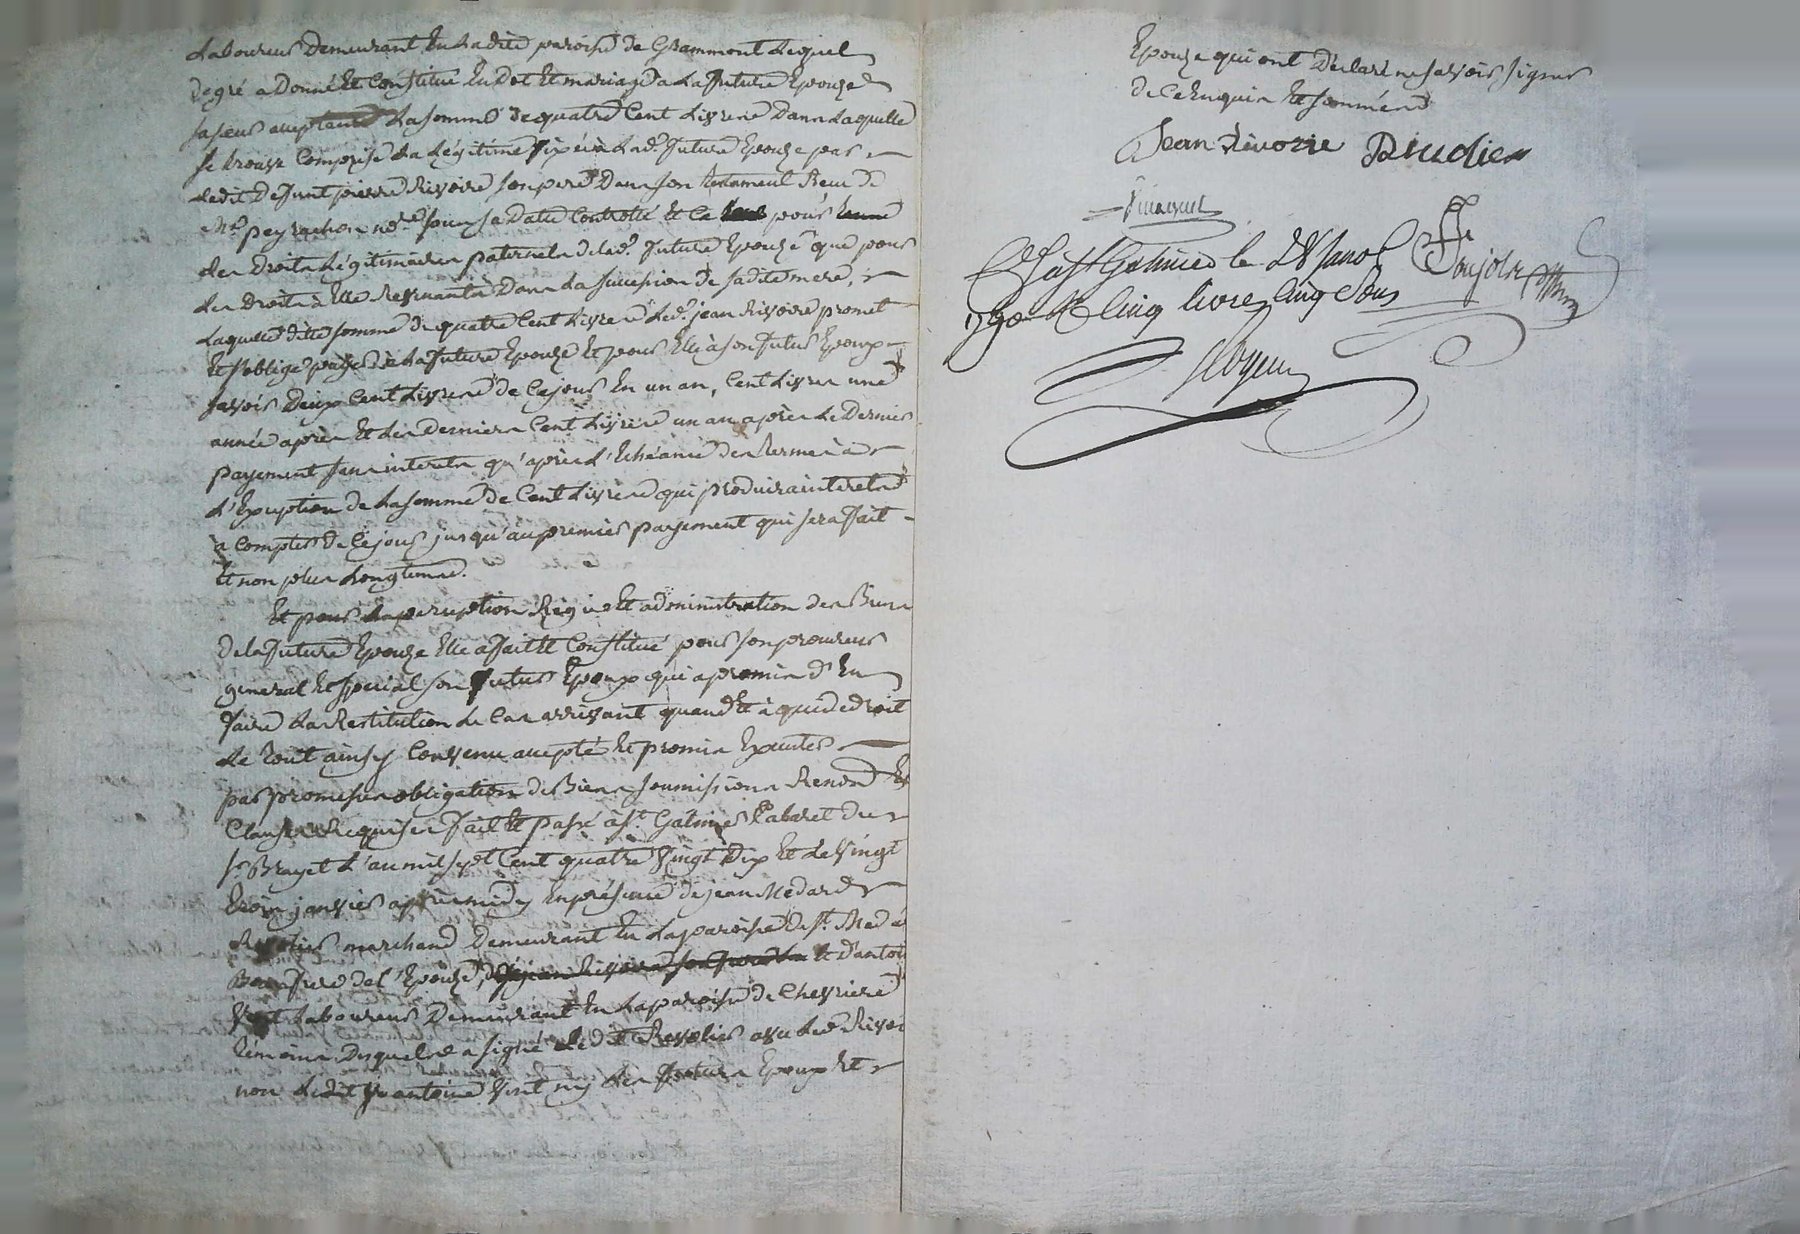 Laboureur demeurant en ladite paroisse de Grammont lequel
degré a donné et constitué en dot et mariage a la future Epouze
sa sœur acceptante la somme de quatre cent livres dans laquelle
se trouve comprise la légitime fixée à lad. future Epouze par
ledit defunt pierre Rivoire son pere dans son testament Reçu de
Me peyrachon nore sous sa date Controllé et ce pour
les droits légitimaires paternels de lad. future Epouze que pour
les droits à Elle Revenants dans la succession de sadite mere,
laquelle ditte somme de quatre cent livres led. jean Rivoire promet
et s'oblige payer à la future Epouze et pour Elle à son futur Epoux
savoir deux cent livres de ce jour en un an, cent livres une
année après et les derniers cent livres un an après le dernier
payement sans interets qu'après l'Echéance des termes à
l'Exception de la somme de cent livres qui produira interets
à compter de ce jour jusqu'au premier payement qui sera fait
et non plus longtems.
Et pour la perception Régie et administration des Biens
de la future Epouze Elle a fait et constitué pour son procureur
general et special son futur Epoux qui a promis d'En
faire la Restitution le cas arrivant quand et à qui de droit
le tout ainsy convenu accepté et promis Executer
par promesses obligation de Biens soumissions Renond Et
clauses Requises fait et passé à St Galmier Cabaret du
sr Brayet l'an mil sept cent quatre vingt dix et le vingt
trois janvier après midy En présence de jean Medard
Revolier marchand demeurant En la paroisse de St Meda
Beau frere de l'Epouze, de jean Rivoire son frere et d'antoi
Laboureur demeurant En la paroisse de Chevrieres
témoins, desquels a signé ledit Revolier avec led Rivoi
non ledit antoine ny les future Epoux Et
Epouze qui ont déclaré ne savoir signer
de ce Enquis et sommés
Jean Rivoire
le 28 Janv.
1790 cinq livres cinq sous